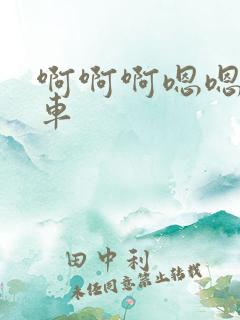 啊啊啊嗯嗯
車
田中利
未经同意禁止转载